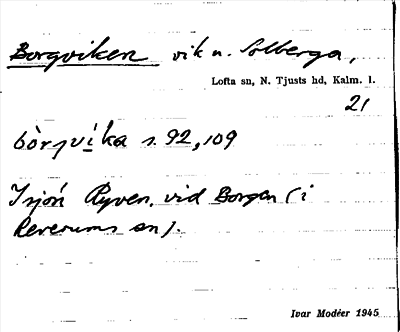 Borgviken vik u. Solberga,
Lofta sn, N. Tjusts hd, Kalm. l.
21
bòrgvíka s. 92, 109
I sjön Ryven, vid Borgen (i
Reverums sn).
Ivar Modéer 1945